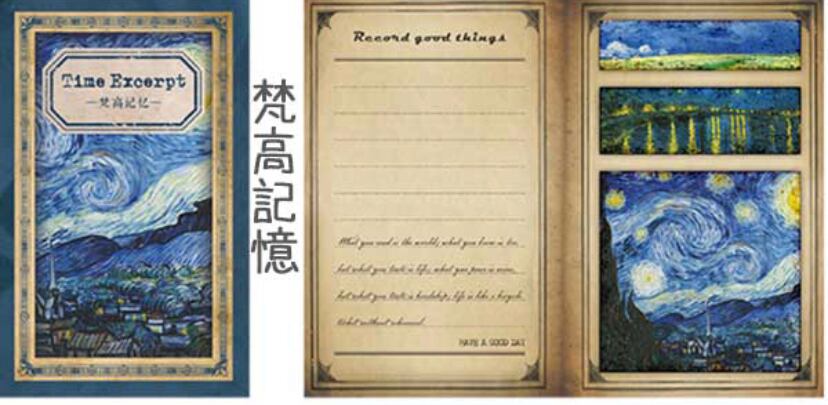 Time Excerpt
—梵高記忆—
梵高記憶
Record good things
What you read is the world; what you is tea,
but what you taste is life; what you pour is wine,
but what you taste is hardship; life is like a bicycle
ticket without
HAVE A GOOD DAY